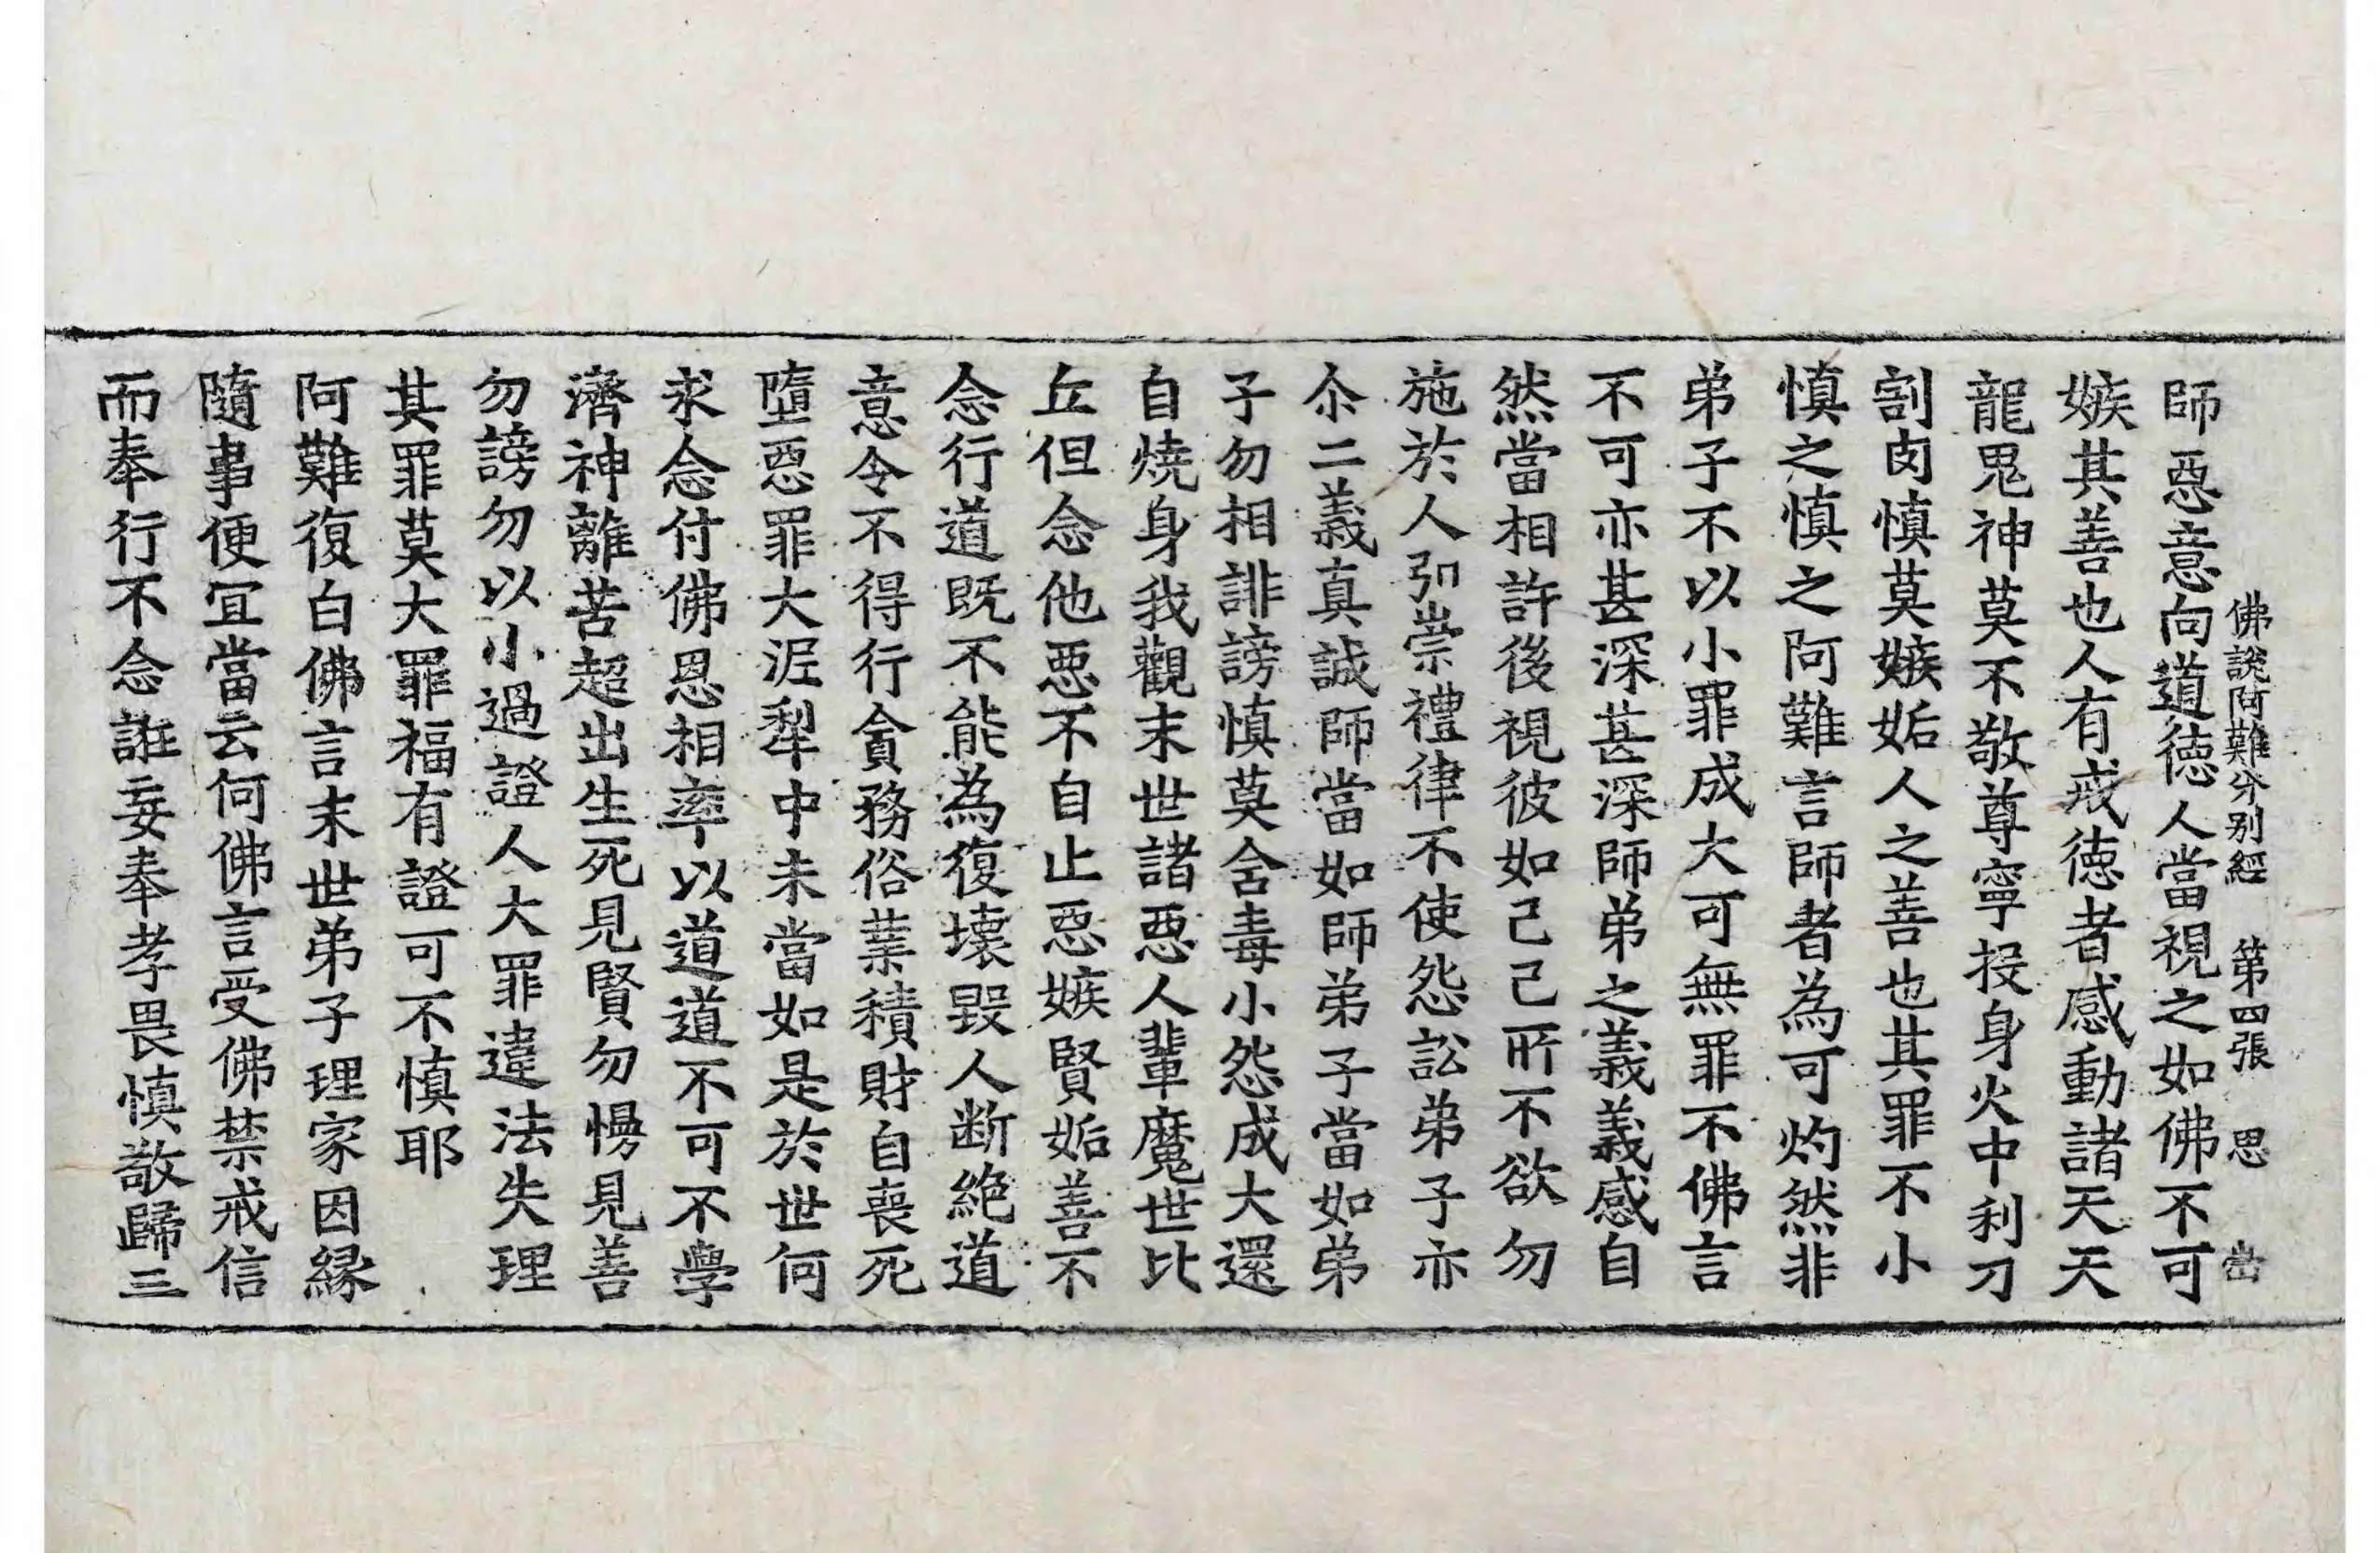 佛說阿難分別經 第四張 思
師惡意向道德人當視之如佛不可
嫉其善也人有戒德者感動諸天天
龍鬼神莫不敬尊寧投身火中利刀
割肉慎莫嫉妬人之善也其罪不小
慎之慎之阿難言師者為可灼然非
弟子不以小罪成大可無罪不佛言
不可亦甚深甚深師弟之義義感自
然當相許後視彼如己己所不欲勿
施於人引崇禮律不使怨訟弟子亦
尒二義真誠師當如師弟子當如弟
子勿相誹謗慎莫含毒小怨成大還
自燒身我觀末世諸惡人輩魔世比
丘但念他惡不自止惡嫉賢妬善不
念行道既不能為復壞毀人断絕道
意令不得行貪務俗業積財自喪死
墮惡罪大泥犁中未當如是於世何
求念付佛恩相率以道道不可不學
濟神離苦超出生死見賢勿慢見善
勿謗勿以小過證人大罪違法失理
其罪莫大罪福有證可不慎耶
阿難復白佛言末世弟子理家因緣
隨事便宜當云何佛言受佛禁戒信
而奉行不念誑妄奉孝畏慎敬歸三